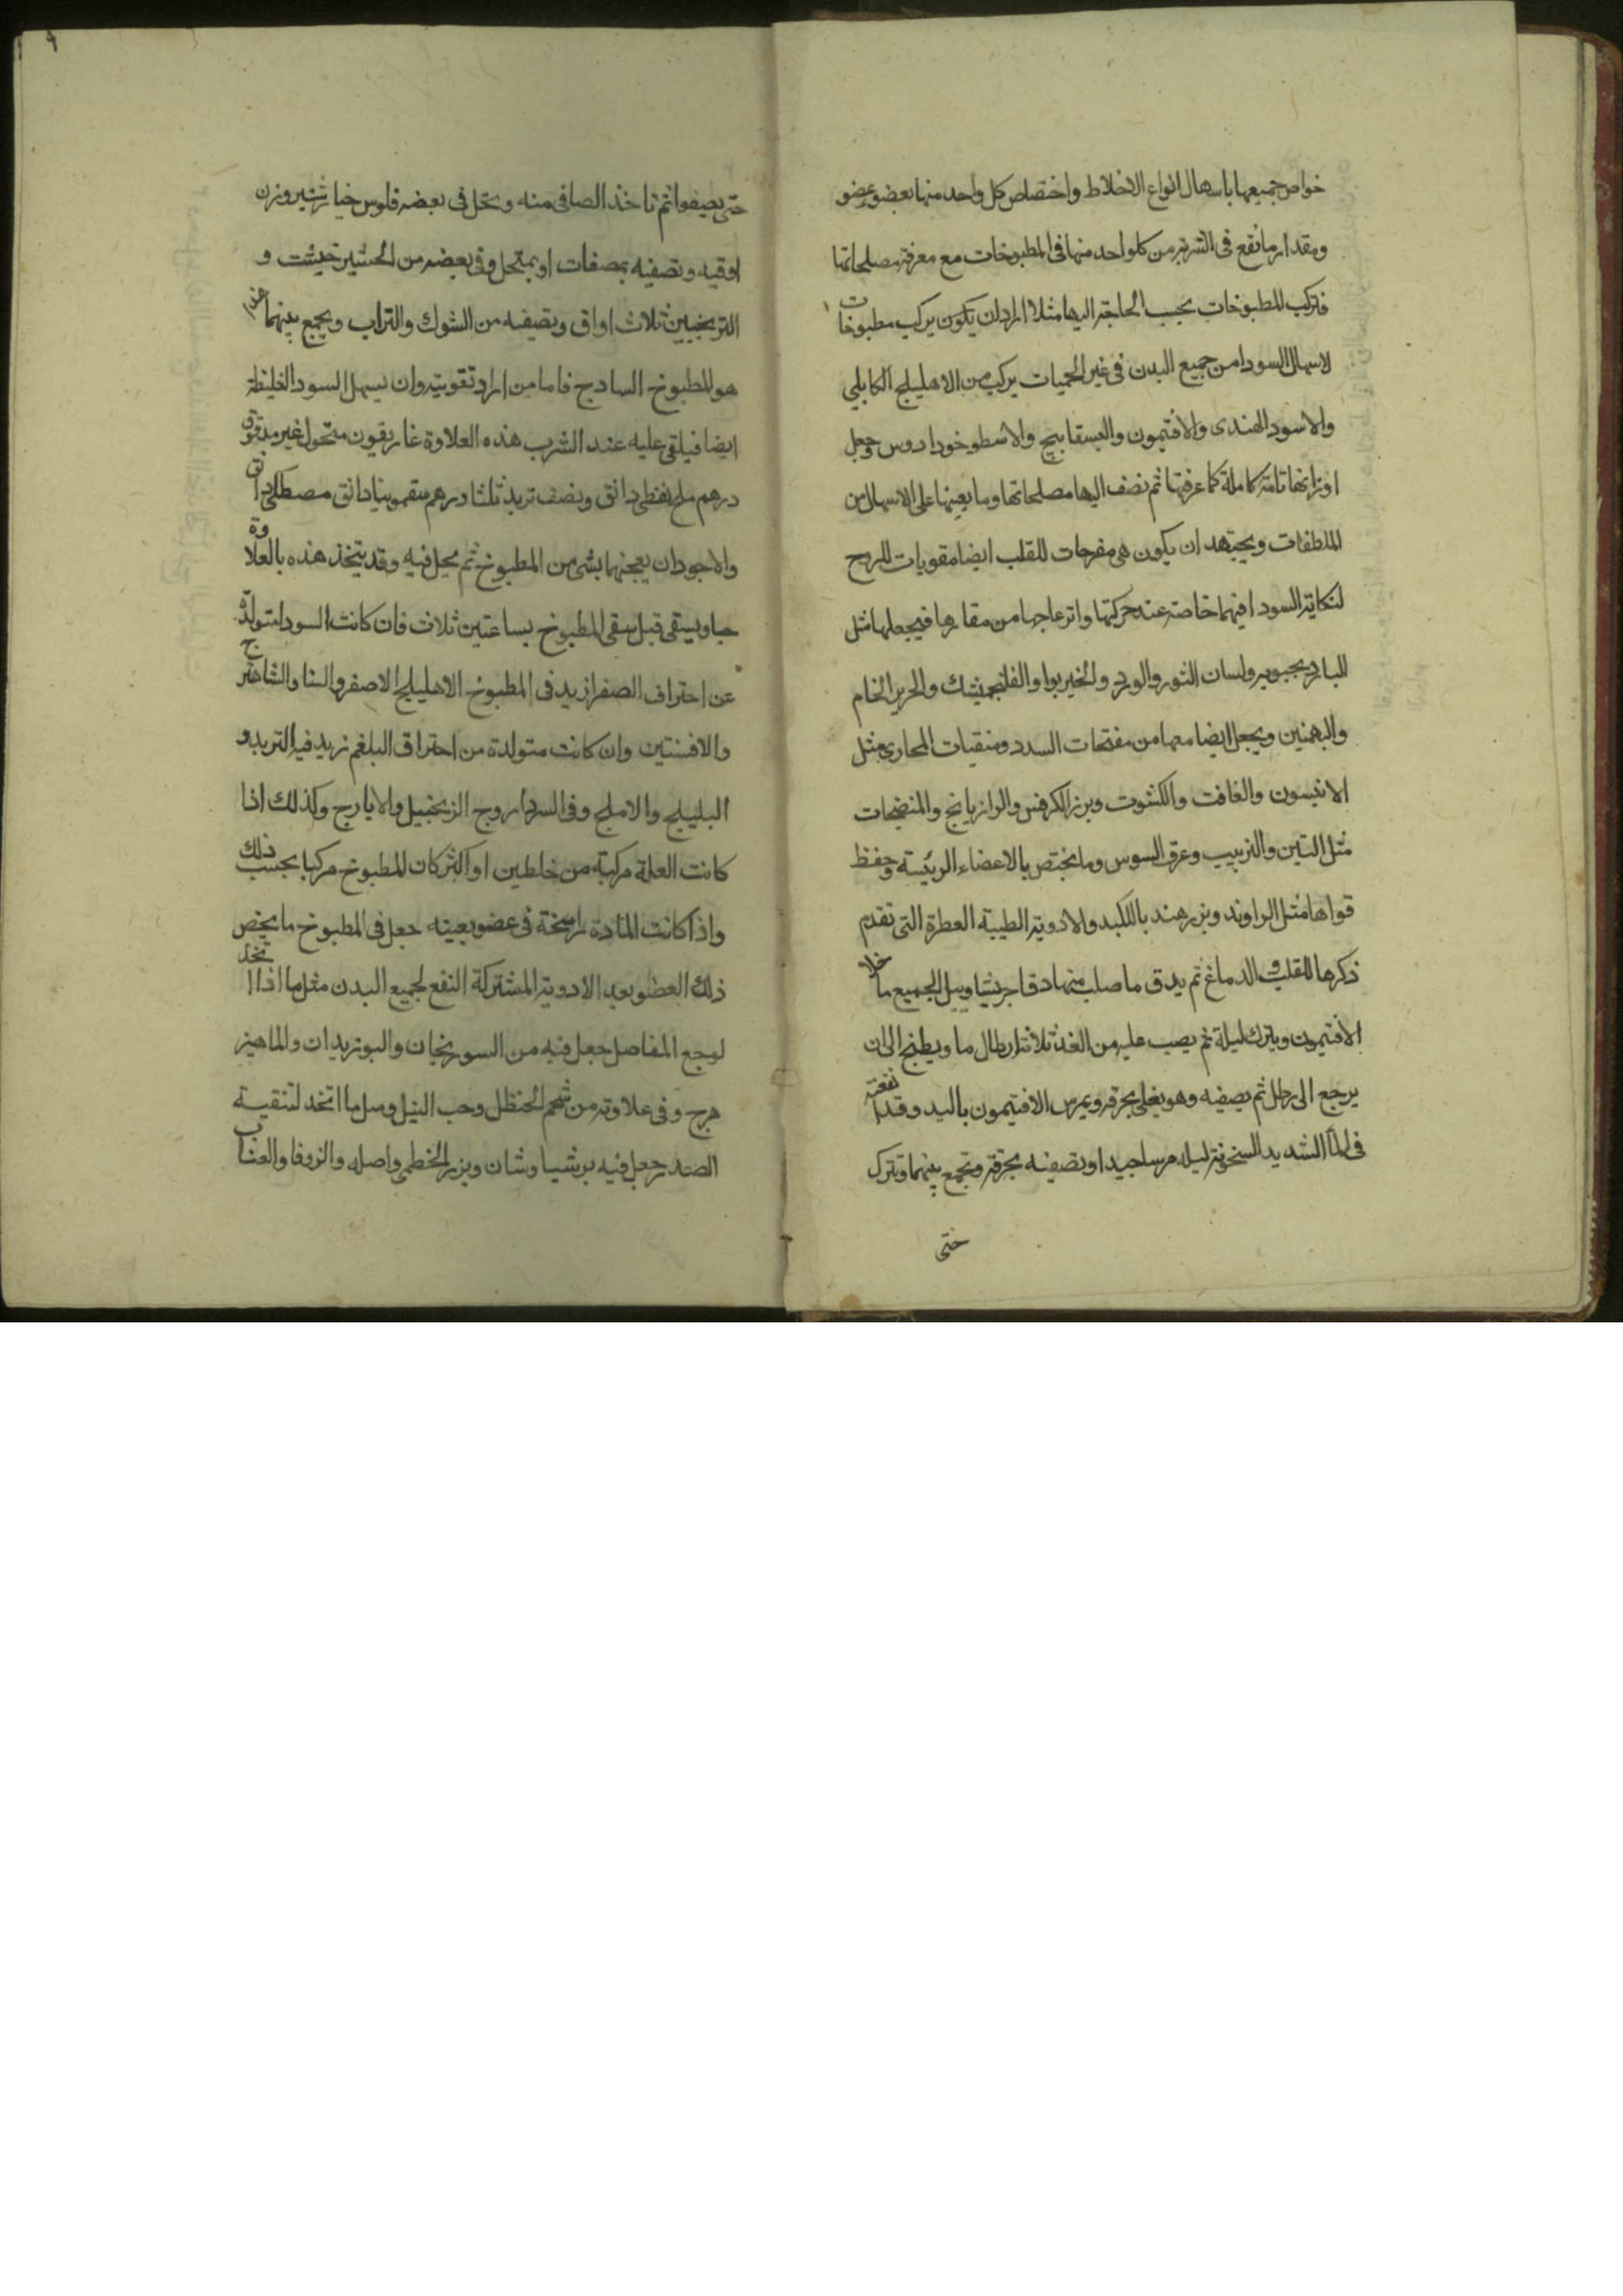 خواص جميعها باسهال انواع الاخلاط واختصاص كل واحد منها بعضو عضو
ومقدار ما تقع فى الشربة من كلواحد منها فى المطبوخات مع معرفة مصلحاتها
فتركب المطبوخات بحسب الحاجة اليها مثلا اراد ان يكون يركب مطبوخات
لاسهال السودا من جميع البدن فى غير الحميات يركب من الاهليلج الكابلي
والاسود الهندى والافتيمون والبسفايج والاسطوخودوس وجعل
اوزانها تامة كاملة كما عرفتها ثم نضف اليها مصلحاتها وما يعينها على الاسهال من
الملطفات ويجتهد ان يكون هى مفرحات للقلب ايضا مقويات للروح
لنكاية السودا فيهما خاصة عند حركتها وانزعاجها من مقارها فيجعلها مثل
الباد ولسان الثور والورد والخيربوا والفلنجمشك والحرير الخام
والبهمنين ويجعل ايضا معها من مفتحات السدد ومنقيات المجارى مثل
الانيسون والغافت والكشوت وبزر الكرفس والرازيانج والمنضجات
مثل التين والزبيب وعرق السوس وما يختص بالاعضاء الرئيسة وحفظ
قواها مثل الراوند وبزر هندبا للكبد والادوية الطيبة العطرة التى تقدم
ذكرها للقلب والدماغ ثم يدق ما صلب منها دقا جريشا ويبل الجميع ما خلا
الافتيمون ويترك ليلة ثم يصب عليه من الغد ثلاثة ارطال ما ويطبخ الى ان
يرجع الى رطل ثم يصفيه وهو يغلى بخرقة ويمرس الافتيمون باليد وقد انقعته
فى الما الشديد السخونة ليلة مرسا جيدا وتصفيه بخرقة وتجمع بينهما وتترك
حتى
٩
حتى يصفوا ثم تاخذ الصافى منه وتحل فى بعضه فلوس خيارشنبر وزن
اوقيه وتصفيه بمصفات او بمنخل وفى بعضه من الخشت و
الترنجبين ثلاث اواق وتصفيه من الشوك والتراب ويجمع بينهما هذا
هو المطبوخ السادج فاما من اراد تقويته وان يسهل السودا الغليظة
ايضا فيلقى عليه عند الشرب هذه العلاوة غاريقون منخول غير مدقوق
درهم ملح نفطى دانق ونصف تربد ثلثا درهم سقمونيا دانق مصطكى دانق
والاجود ان يعجنها بشى من المطبوخ ثم يحل فيه وقد يتخذ هذه بالعلاوة
حبا ويسقى قبل سقى المطبوخ بساعتين ثلاث فان كانت السودا متولدة
عن احتراق الصفرا زيد فى المطبوخ الاهليلج الاصفر والسنا والشاهترج
والافسنتين وان كانت متولدة من احتراق البلغم زيد فيه التربد و
البليلج والاملج وفى الزنجبيل والايارج وكذلك اذا
كانت العلة مركبة من خلطين او اكثر كان المطبوخ مركبا بحسب ذلك
واذا كانت المادة راسخة فى عضو بعينه جعل فى المطبوخ ما يخص
ذلك العضو بعد الادوية المشتركة النفع لجميع البدن مثل ما اذا اتخذ
لوجع المفاصل جعل فيه من السورنجان والبوزيدان والماهيز
هرج وفى علاوته من شحم الحنظل وحب النيل ومثل ما اتخذ لتنقية
الصدر جعل فيه برشياوشان وبزر الخطمى واصله والزوفا والعناب